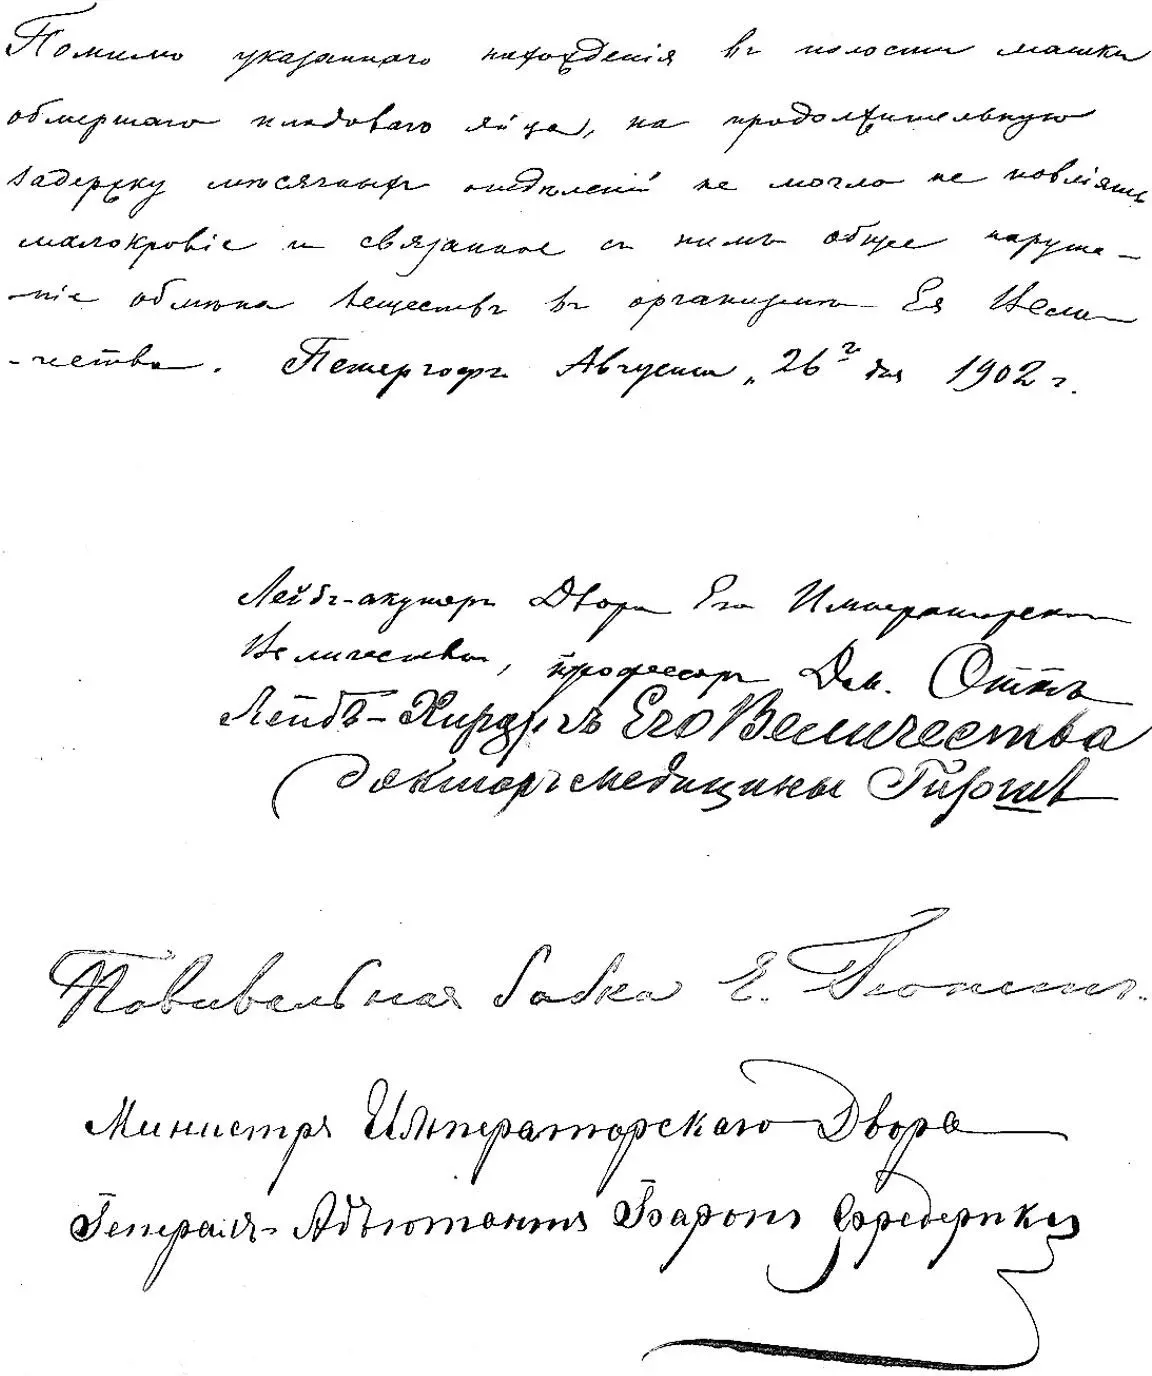 Помимо указаннаго нахожденія въ полости матки
обмершаго плодоваго яйца, на продолжительную
задержку мѣсячныхъ отдѣленій не могло не повліять
малокровіе и связанное съ нимъ общее наруше-
-ніе обмѣна веществъ въ организмѣ Ея Вели-
-чества. Петергофъ Августа „26го дня 1902 г.
Лейбъ-акушеръ Двора Его Императорскаго
Величества, профессоръ Дм. Оттъ
Лейбъ-Хирургъ Его Величества
докторъ медицины Гиршъ
Повивальная бабка Е. Гюнстъ.
Министръ Императорскаго Двора
Генералъ-Адъютантъ Баронъ Фредериксъ